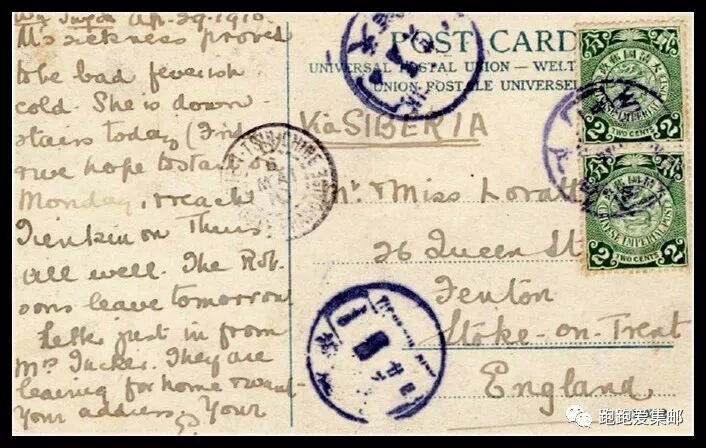 Apr. 29. 1910.
M's sickness proved
to be bad feverish
cold. She is down
stairs today (Frid
we hope to start
Monday, & reach
Tienkin on Thurs
all well. The Rob-
sons leave tomorrow
Letter just in from
Mrs Tucker. They are
leaving for home & want
Your address, Your
POST CARD
UNIVERSAL POSTAL UNION — WELT
UNION POSTALE UNIVERSE
Via SIBERIA
Mr & Miss
26 Queen St
Fenton
Stoke-on-Trent
England
TWO CENTS
2 2
CHINESE IMPERIAL POST
TWO CENTS
2 2
跑跑爱集邮